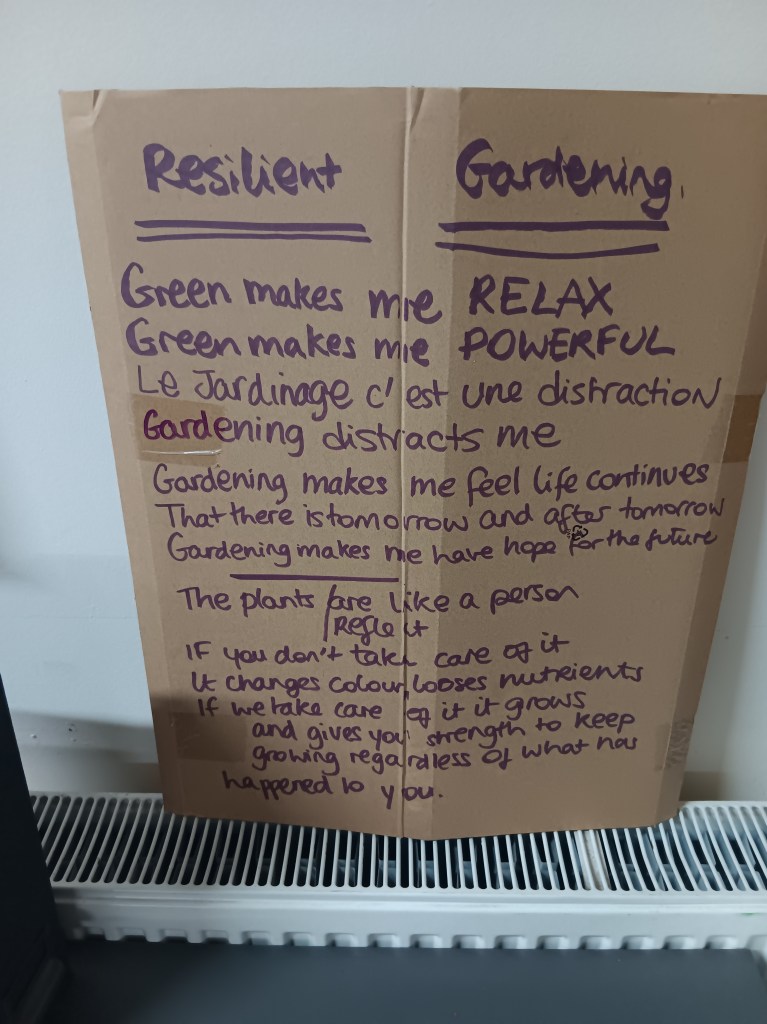 Resilient Gardening.
Green makes me RELAX
Green makes me POWERFUL
Le Jardinage c'est une distraction
Gardening distracts me
Gardening makes me feel life continues
That there is tomorrow and after tomorrow
Gardening makes me have hope for the future
The plants /are like a person
/Reflect
If you don't take care of it
It changes colour, looses nutrients
If we take care of it it grows
and gives you strength to keep
growing regardless of what has
happened to you.